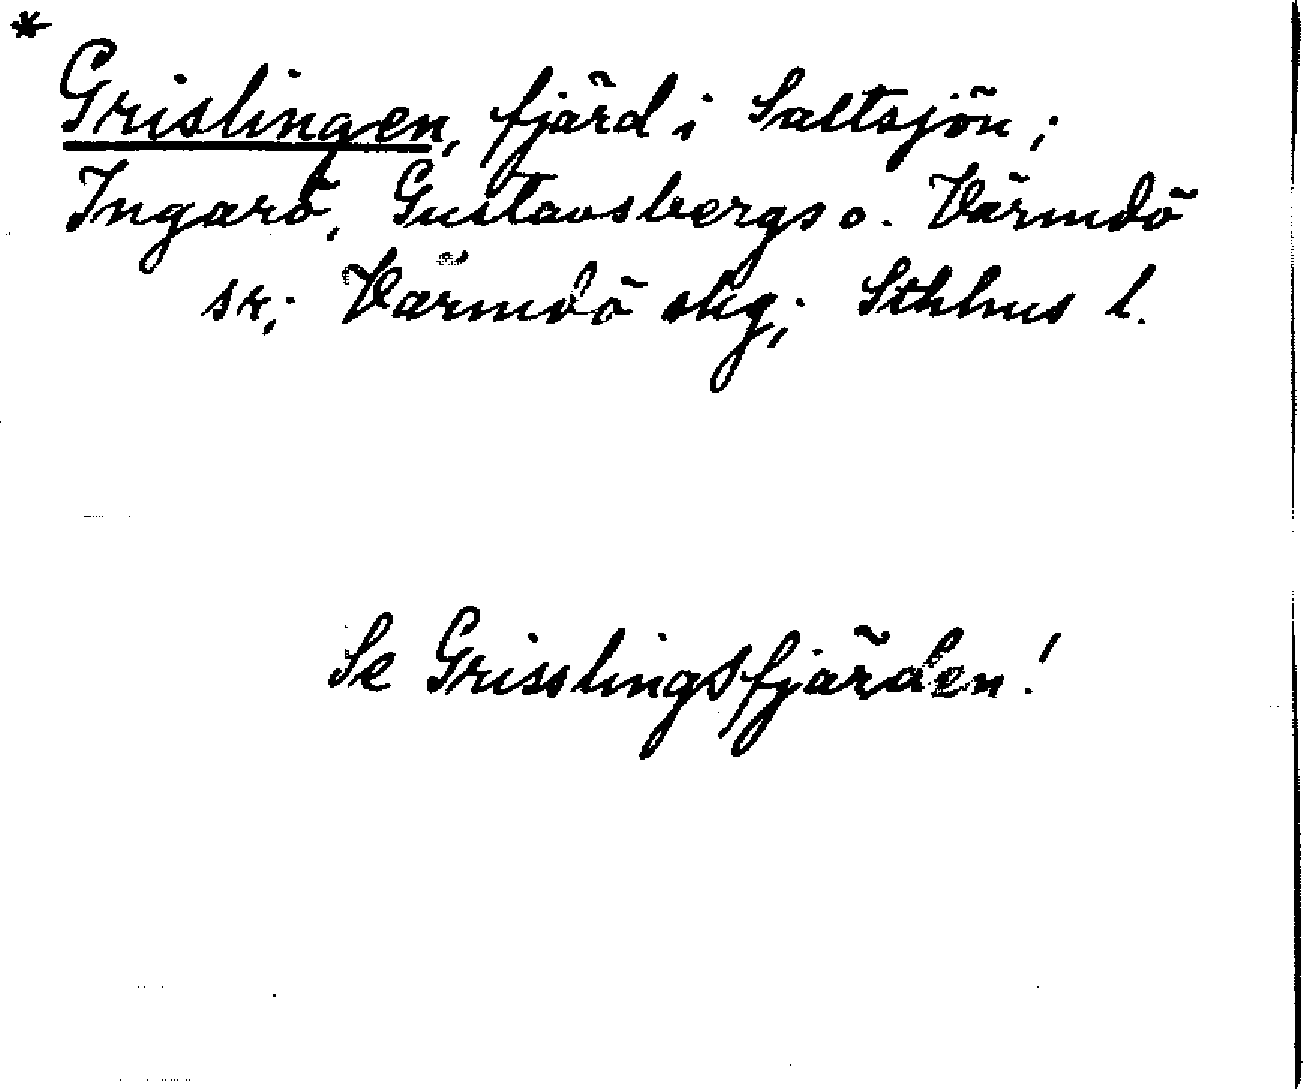 *
Grislingen, fjärd i Saltsjön;
Ingarö, Gustavsbergs o. Värmdö
sk; Värmdö skg; Sthlms l.
Se Grisslingsfjärden!